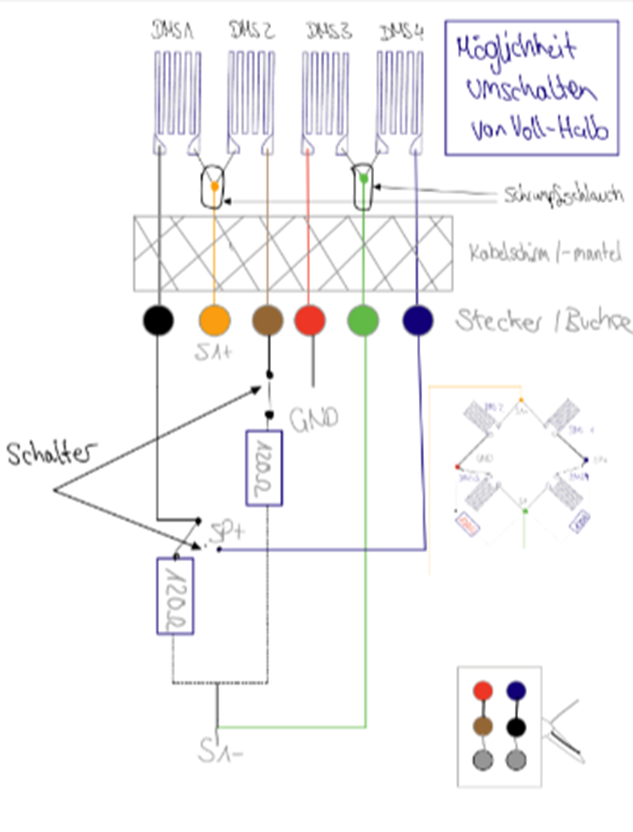 DMS1 DMS2 DMS3 DMS4
Möglichkeit
umschalten
von Voll-Halb
Schrumpfschlauch
Kabelschirm/-mantel
Stecker/Buchse
S1+
GND
Schalter
120Ω
SP+
120Ω
S1-
DMS2
GND